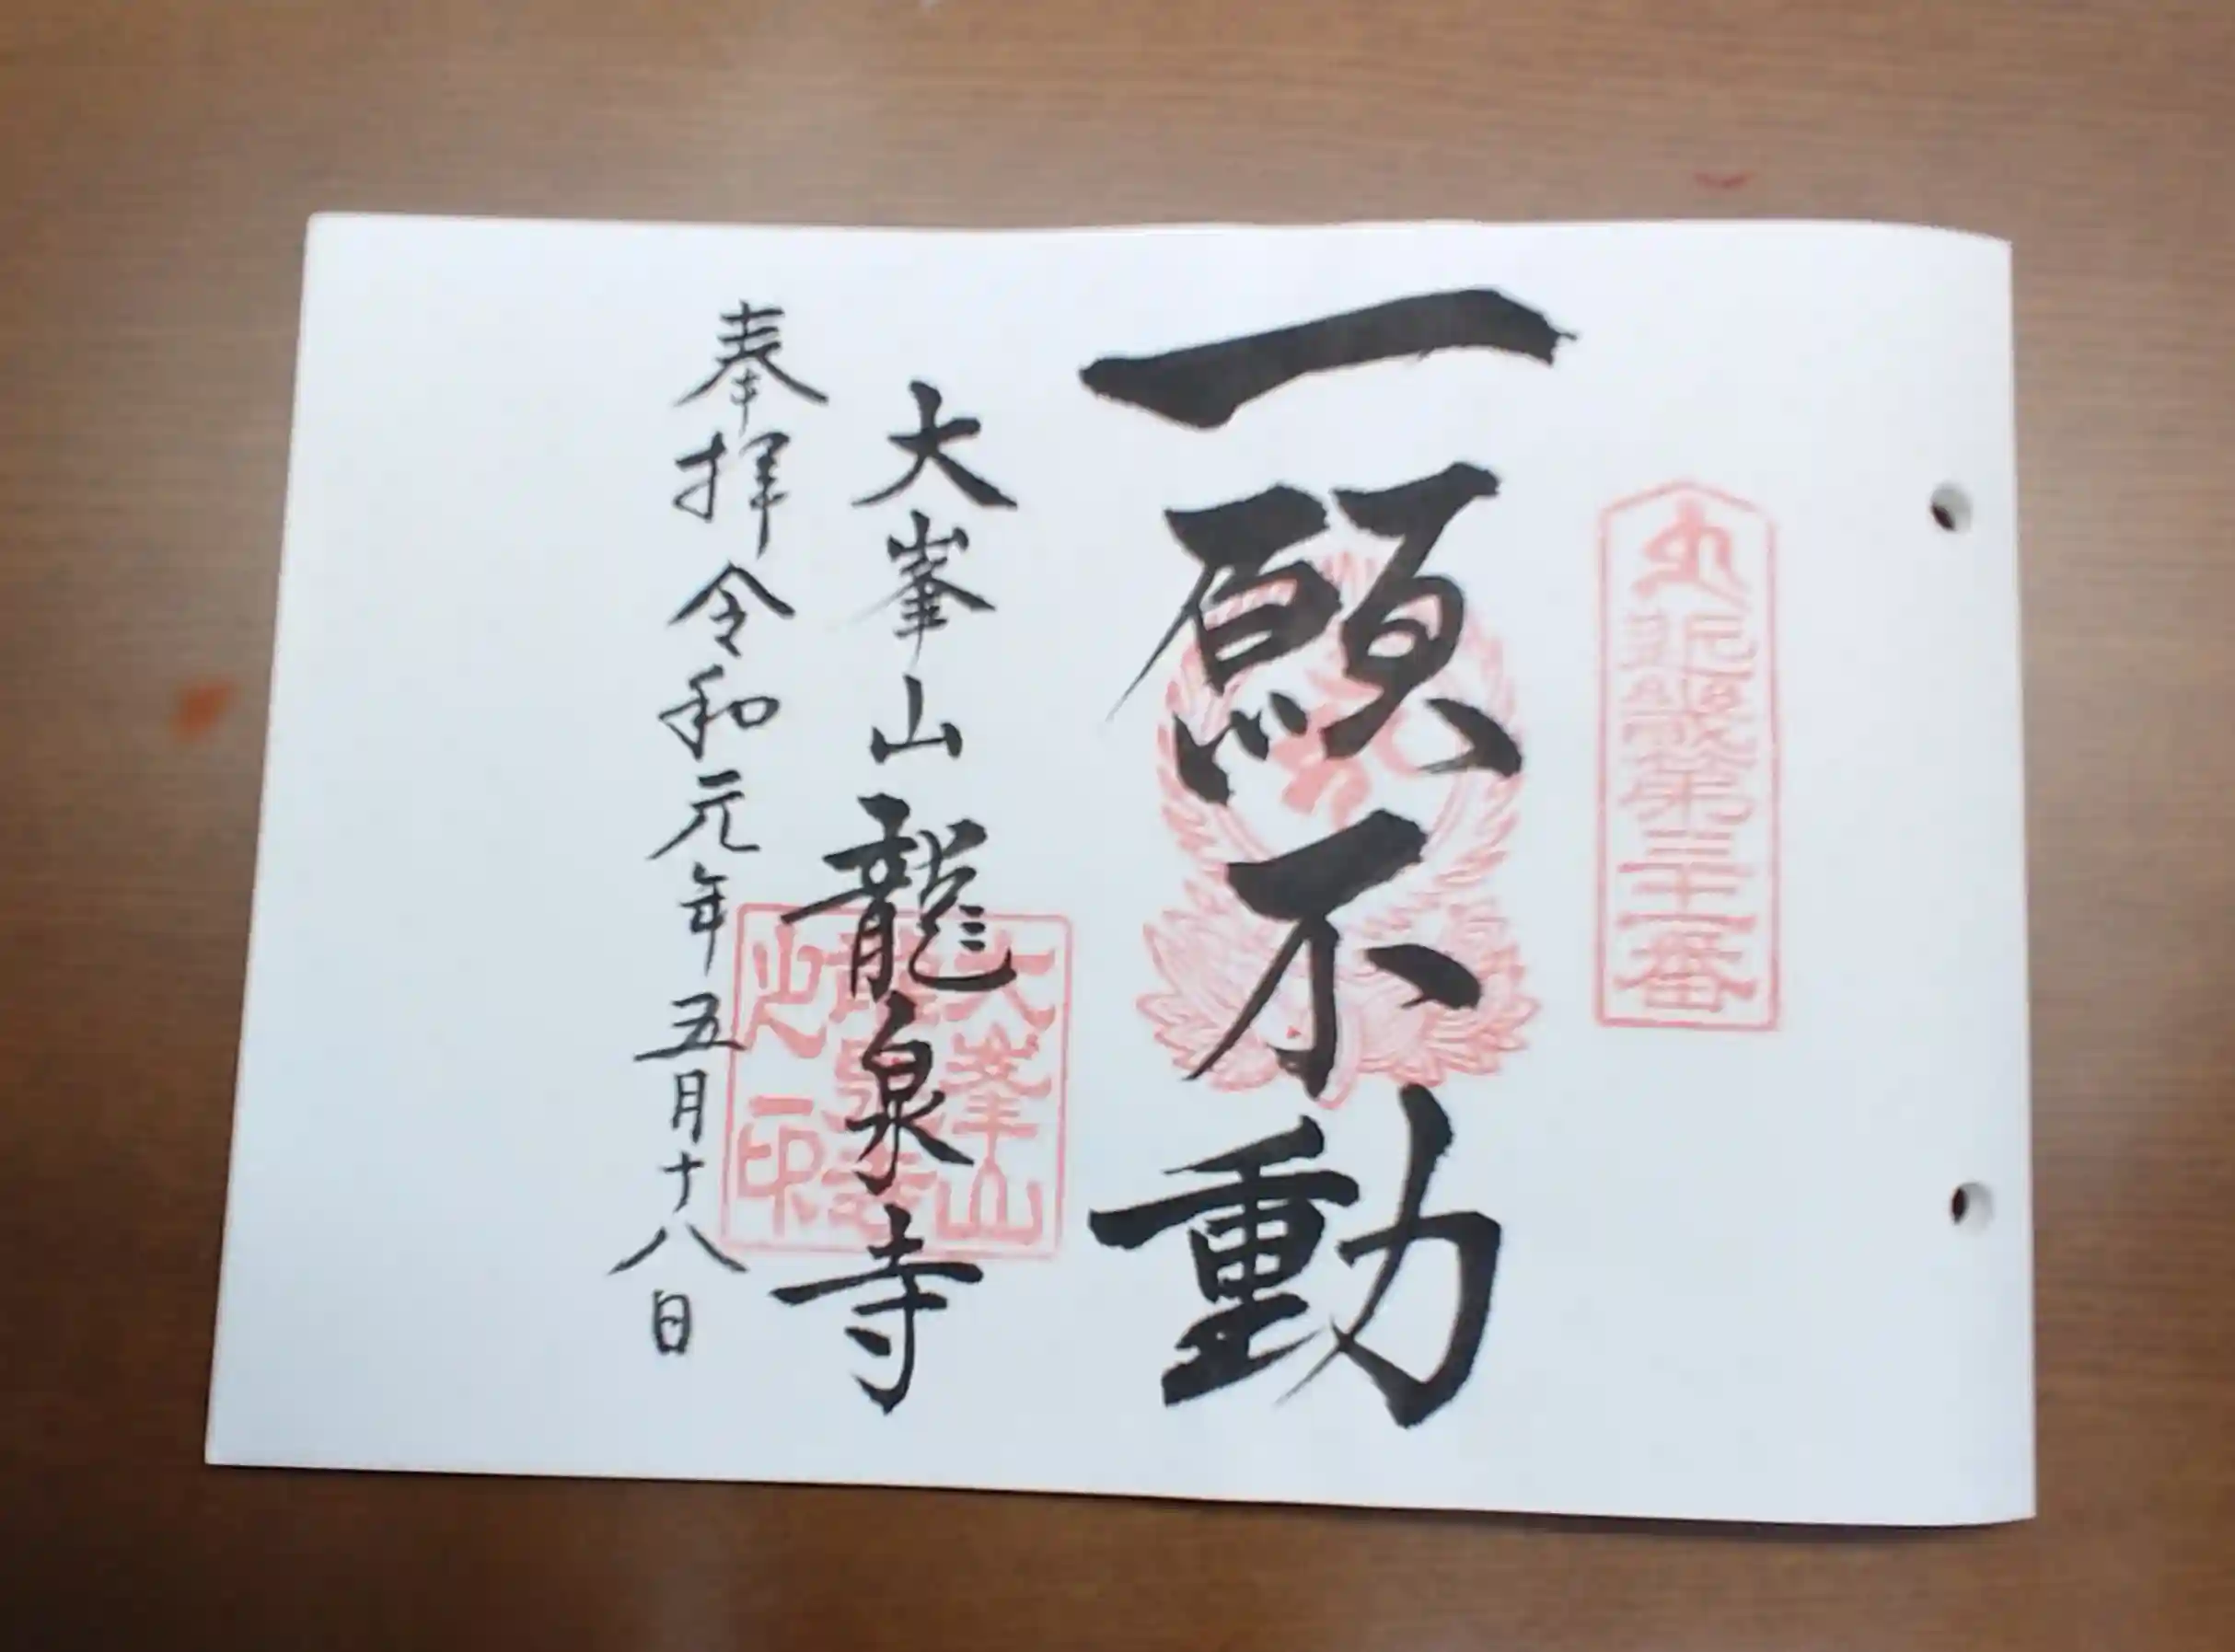 近畿第三十一番
一願不動
大峯山龍泉寺
大峯山
龍泉寺
之印
奉拝令和元年五月十八日